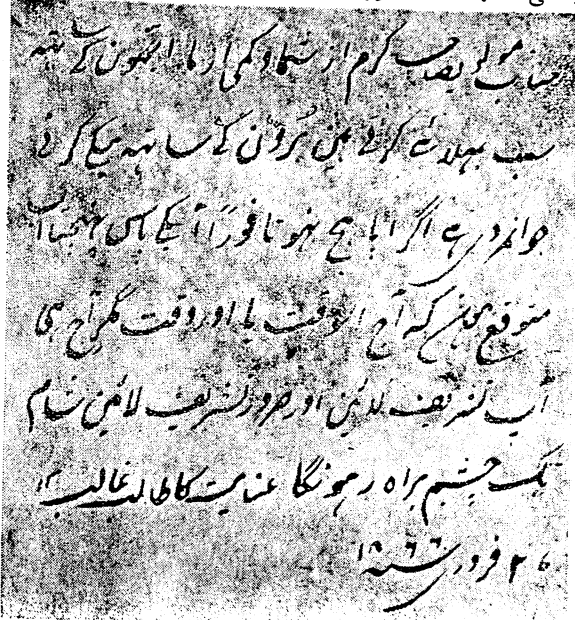 جناب مولوی صاحب کرم از شما و کمی از ما اچھون کے ساتھ
سب بھلائی کرتے ہین بُرون کے ساتھ نیکی کرنی
جوانمردی ہے اگر اپاہج نہوتا فوراً آپکے پاس پہنچتا اب
متوقع ہون کہ آج اسوقت یا اور وقت مگر آج ہی
آپ تشریف لائین اور ضرور تشریف لائین شام
تک چشم براہ رہونگا عنایت کا طالب غالب ۱۲
فروری سنہ ۱۸۶۶